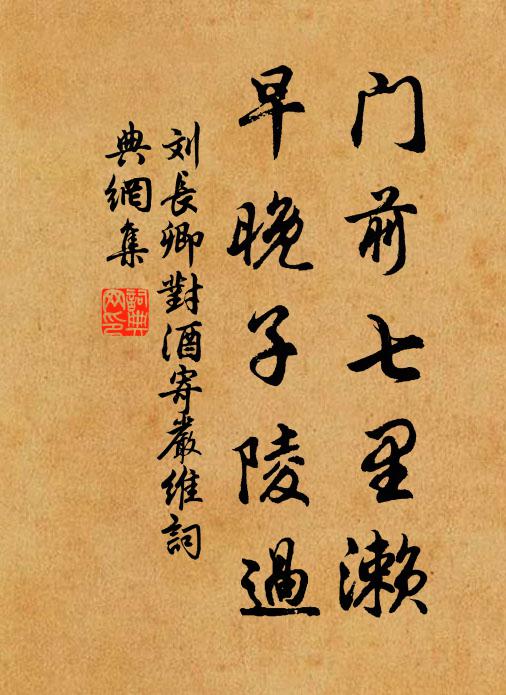 门前七里濑
早晚子陵過
刘長卿對酒寄嚴維詞
典網集
詞典
网印